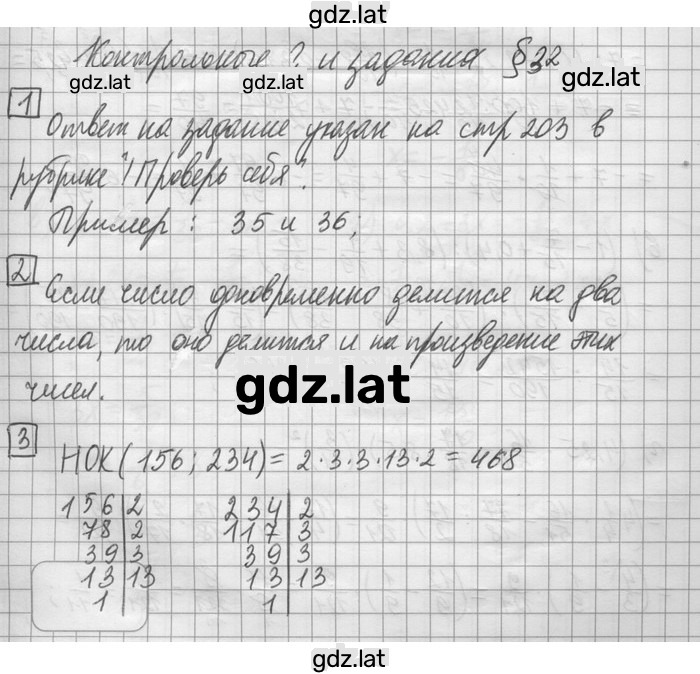 gdz.lat
Контрольные ? и задания §32
gdz.lat gdz.lat gdz.lat
1
Ответ на задание указан на стр 203 в
рубрике "! Проверь себя".
Пример : 35 и 36;
2
Если число одновременно делится на два
числа, то оно делится и на произведение этих
чисел.
gdz.lat
3
НОК(156; 234)= 2·3·3·13·2 = 468
156 2 234 2
78 2 117 3
39 3 39 3
13 13 13 13
1 1
gdz.lat